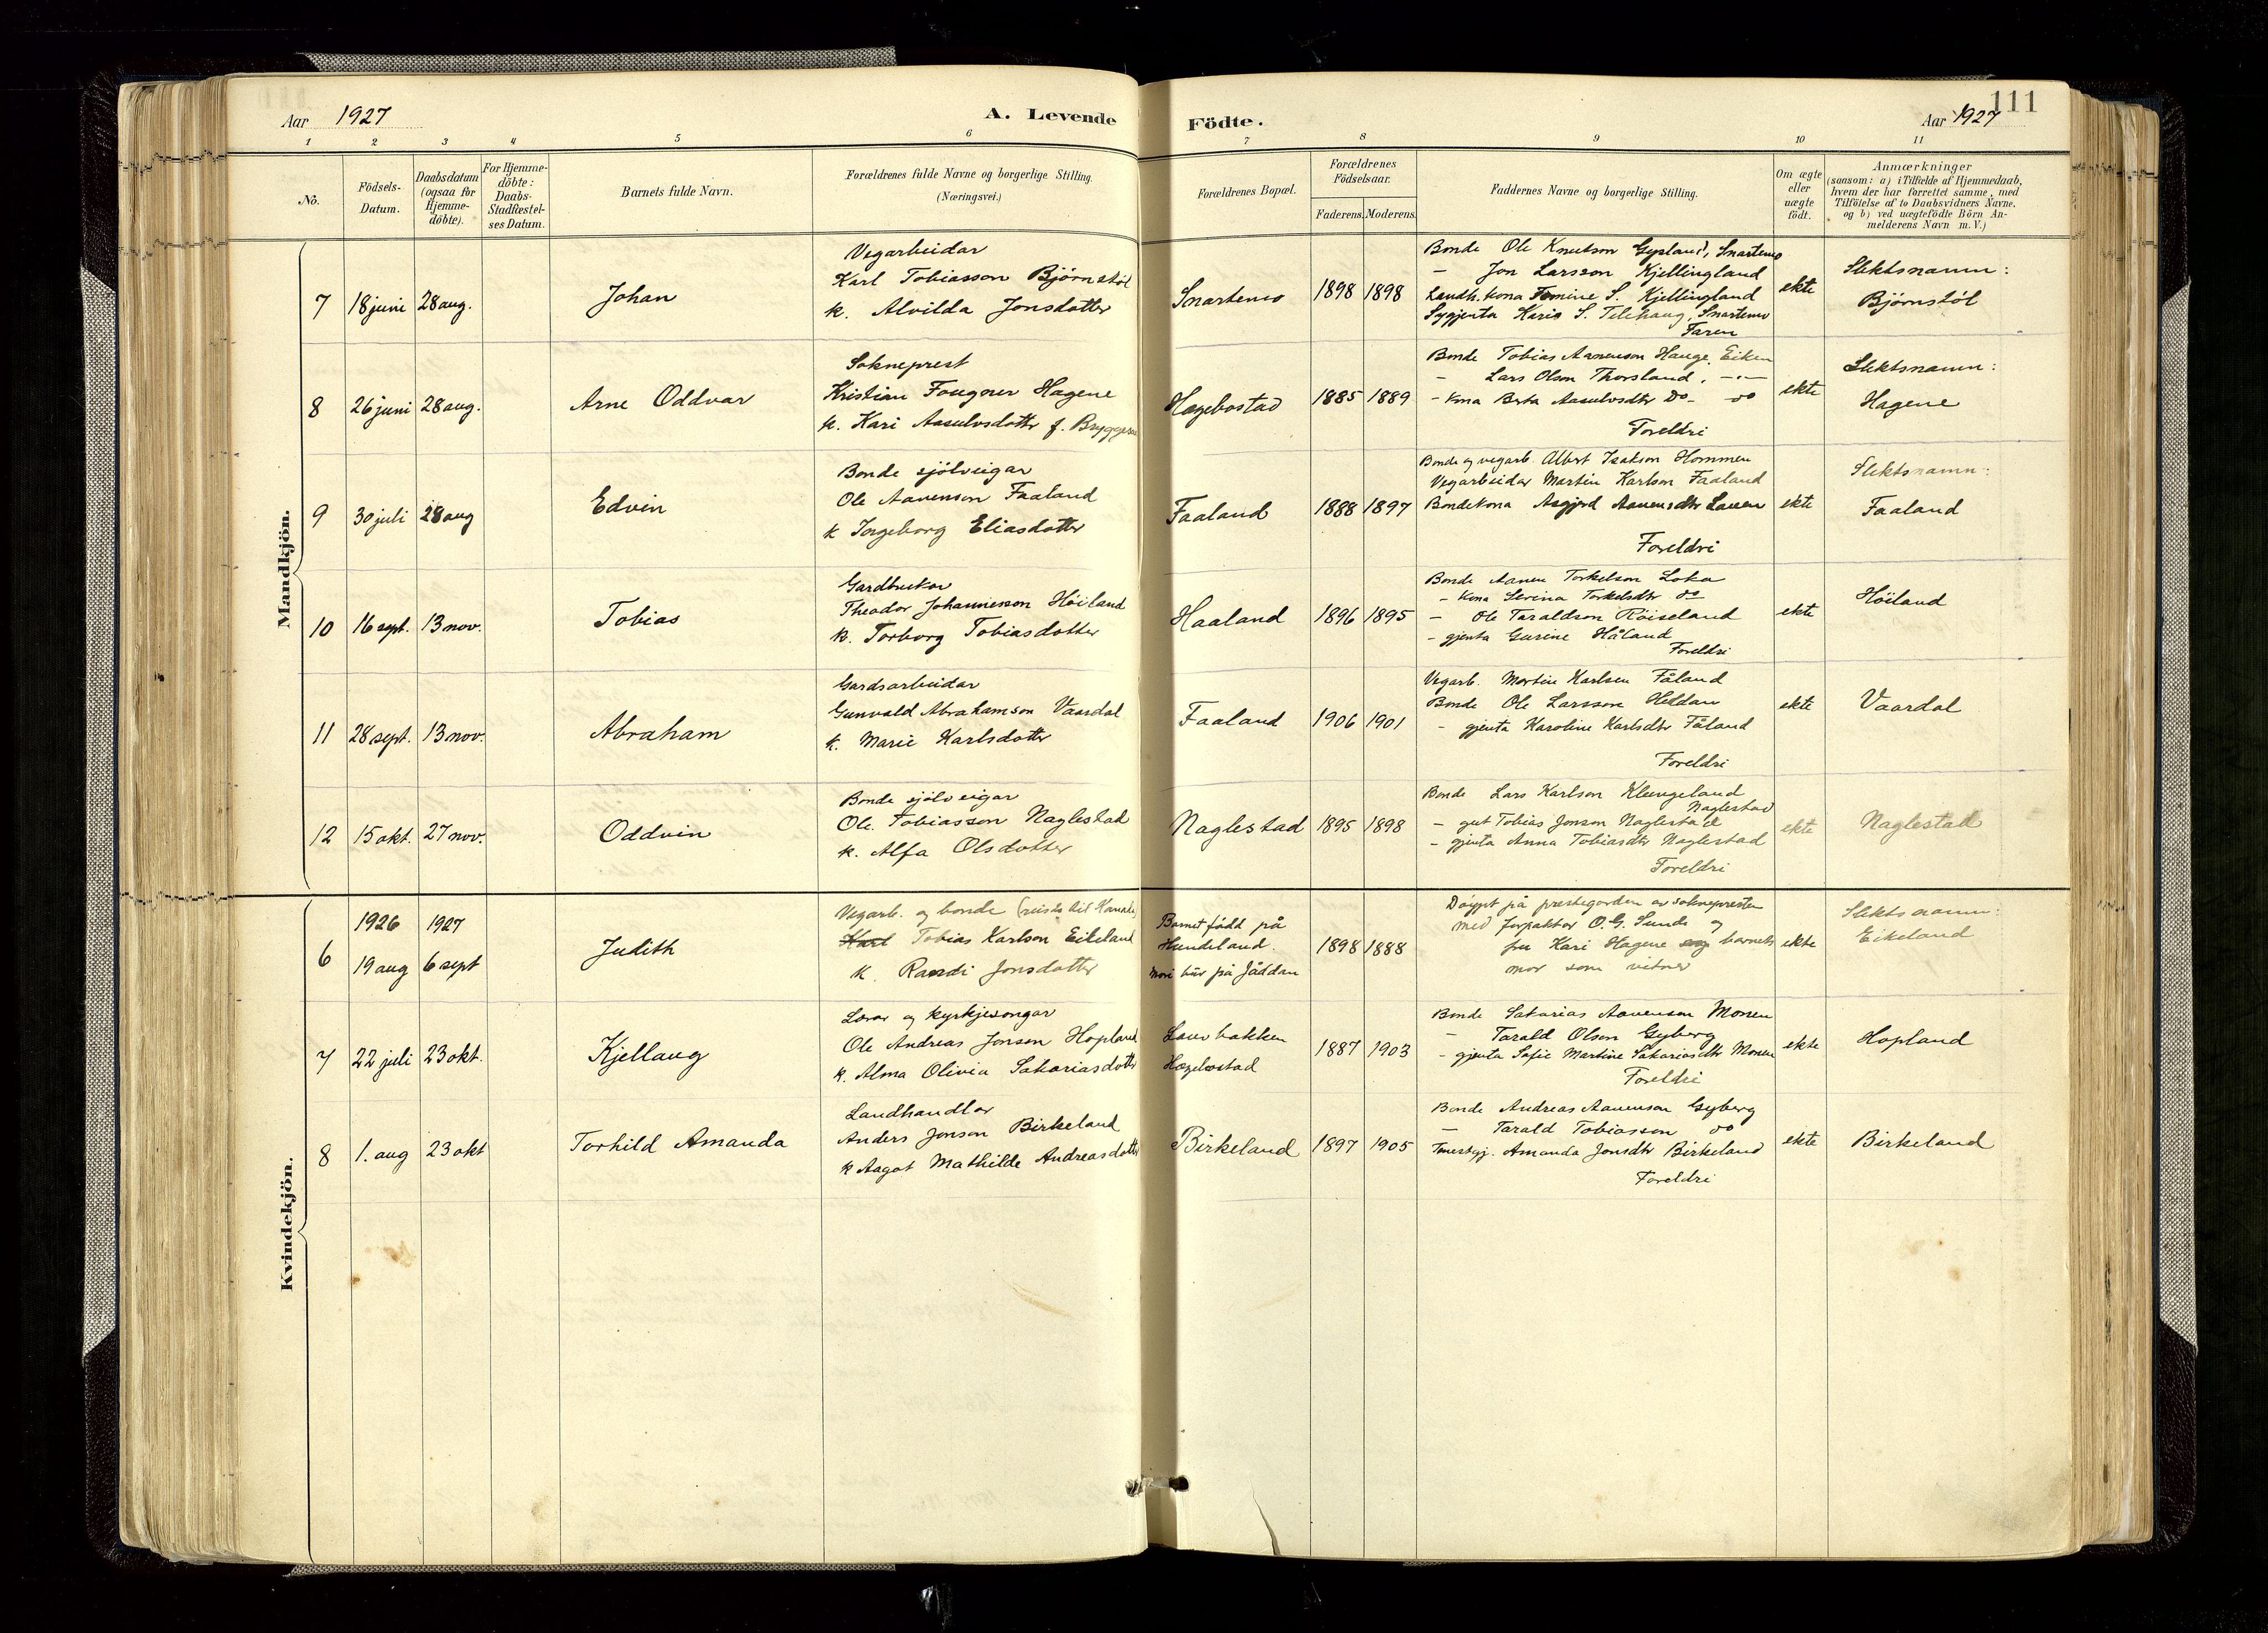 Aar 1927
A. Levende Födte.
Aar 1927
111
1 2 3 4 5 6 7 8 9 10 11
No.
Födsels-Datum.
Daabsdatum (ogsaa for Hjemme-döbte).
For Hjemme-döbte: Daabs-Stadfæstel-ses Datum.
Barnets fulde Navn.
Forældrenes fulde Navne og borgerlige Stilling. (Næringsvei.)
Forældrenes Bopæl.
Forældrenes Födselsaar.
Faderens. Moderens.
Faddernes Navne og borgerlige Stilling.
Om ægte eller uægte födt.
Anmærkninger
(saasom: a) i Tilfælde af Hjemmedaab,
hvem der har forrettet samme, med
Tilföielse af to Daabsvidners Navne,
og b) ved uægtefödte Börn An-
melderens Navn m. V.)
Mandkjön.
7 18 juni 28 aug. Johan
Vegarbeidar
Karl Tobiasson Bjørnstøl
k. Alvilda Jonsdotter
Snartemo 1898 1898
Bonde Ole Knutson Gysland, Snartemo
- Jon Larsson Kjellingland
Landh. kona Tomine S. Kjellingland
Sygjenta Karis S. Telehaug, Snartemo
Faren
ekte
Slektsnamn:
Bjørnstøl
8 26 juni 28 aug. Arne Oddvar
Sokneprest
Kristian Fougner Hagene
k. Kari Aasulvsdotter f.
Hægebostad 1885 1889
Bonde Tobias Aanenson Hauge Eiken
- Lars Olson Thorsland. -"-
- kona Berta Aasulvsdtr Do- do
Foreldri
ekte
Slektsnamn:
Hagene
9 30 juli 28 aug Edvin
Bonde sjølveigar
Ole Aanenson Faaland
k Ingeborg Eliasdotter
Faaland 1888 1897
Bonde og vegarb. Albert Isakson Hommen
Vegarbeidar Martin Karlson Faaland
Bondekona Asgjerd Aanensdtr Lauen
Foreldri
ekte
Slektsnamn:
Faaland
10 16 sept. 13 nov. Tobias
Gardbrukar
Theodor Johannesson Høiland
k. Torborg Tobiasdotter
Haaland 1896 1895
Bonde Aanen Torkelson Loka
- kona Serina Torkelsdtr do
- Ole Taraldson Røiseland
- gjenta Gurine Håland
Foreldri
ekte
Høiland
11 28 sept. 13 nov. Abraham
Gardsarbeidar
Gunvald Abrahamson Vaardal
k. Marie Karlsdotter
Faaland 1906 1901
Vegarb. Martin Karlsen Fåland
Bonde Ole Larsson Heldan
- gjenta Karoline Karlsdtr Fåland
Foreldri
ekte
Vaardal
12 15 okt. 27 nov. Oddvin
Bonde sjølveigar
Ole Tobiasson Naglestad
k. Alfa Olsdotter
Naglestad 1895 1898
Bonde Lars Karlson Klungeland
Naglestad
- gut Tobias Jonson Naglestad
- gjenta Anna Tobiasdtr Naglestad
Foreldri
ekte
Naglestad
Kvindekjön.
1926 1927
6 19 aug 6 sept Judith
Vegarb. og bonde (reiste til Kanada)
Karl Tobias Karlson Eikeland
k. Randi Jonsdotter
Barnet født på
Hundeland.
Mori bur på Jåddan
1898 1888
Døypt på prestegarden av soknepresten
med forpaktar O. G. Sunde og
fru Kari Hagene og barnets
mor som vitner
ekte
Slektsnamn:
Eikeland
7 22 juli 23 okt. Kjellaug
Lærar og kyrkjesongar
Ole Andreas Jonson Hopland
k. Alma Olivia Sakariasdotter
Lauvbakken
Hægebostad
1887 1903
Bonde Sakarias Aanenson Monen
- Tarald Olson Gyberg
- gjenta Sofie Martine Sakariasdtr Monen
Foreldri
ekte
Hopland
8 1. aug 23 okt Torhild Amanda
Landhandlar
Anders Jonson Birkeland
k Aagot Mathilde Andreasdotter
Birkeland 1897 1905
Bonde Andreas Aanenson Gyberg
- Tarald Tobiasson do
Amanda Jonsdtr Birkeland
Foreldri
ekte
Birkeland